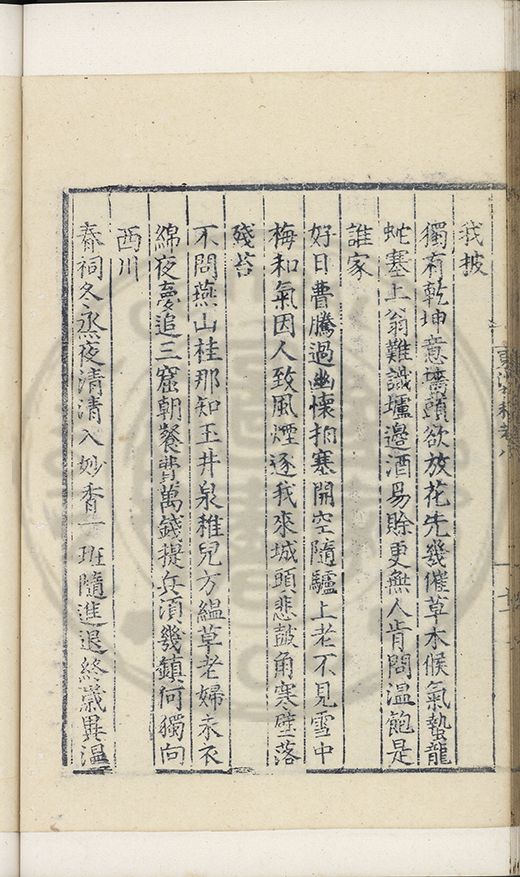 我披
獨有乾坤意墻頭欲放花先幾催草木候氣蟄龍
蛇塞上翁難識壚邊酒易賖更無人肯問温飽是
誰家
好日曹騰過幽懷抑塞開空隨驢上老不見雪中
梅和氣因人致風煙逐我來城頭悲鼓角寒壁落
殘苔
不問燕山桂那知玉井泉稚兒方緼草老婦未衣
綿夜夢追三窟朝餐費萬錢提兵湏幾鎮何獨向
西川
春祠冬烝夜清清入妙香一班隨進退終歲異温